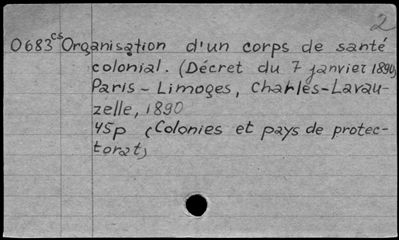 2
0683 cs Organisation d'un corps de santé
colonial. (Décret du 7 janvier 1890)
Paris - Limoges, Charles-Lavau-
zelle, 1890
45p (Colonies et pays de protec-
torat)